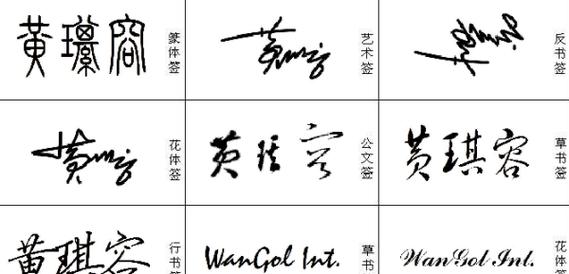 黃瓓容 篆体签
黄琪容 艺术签
反书签
黄琪容 花体签
黄琪容 公文签
黄琪容 草书签
黄琪容 行书签
WanGol Int. 草书
WanGol Int. 花体签